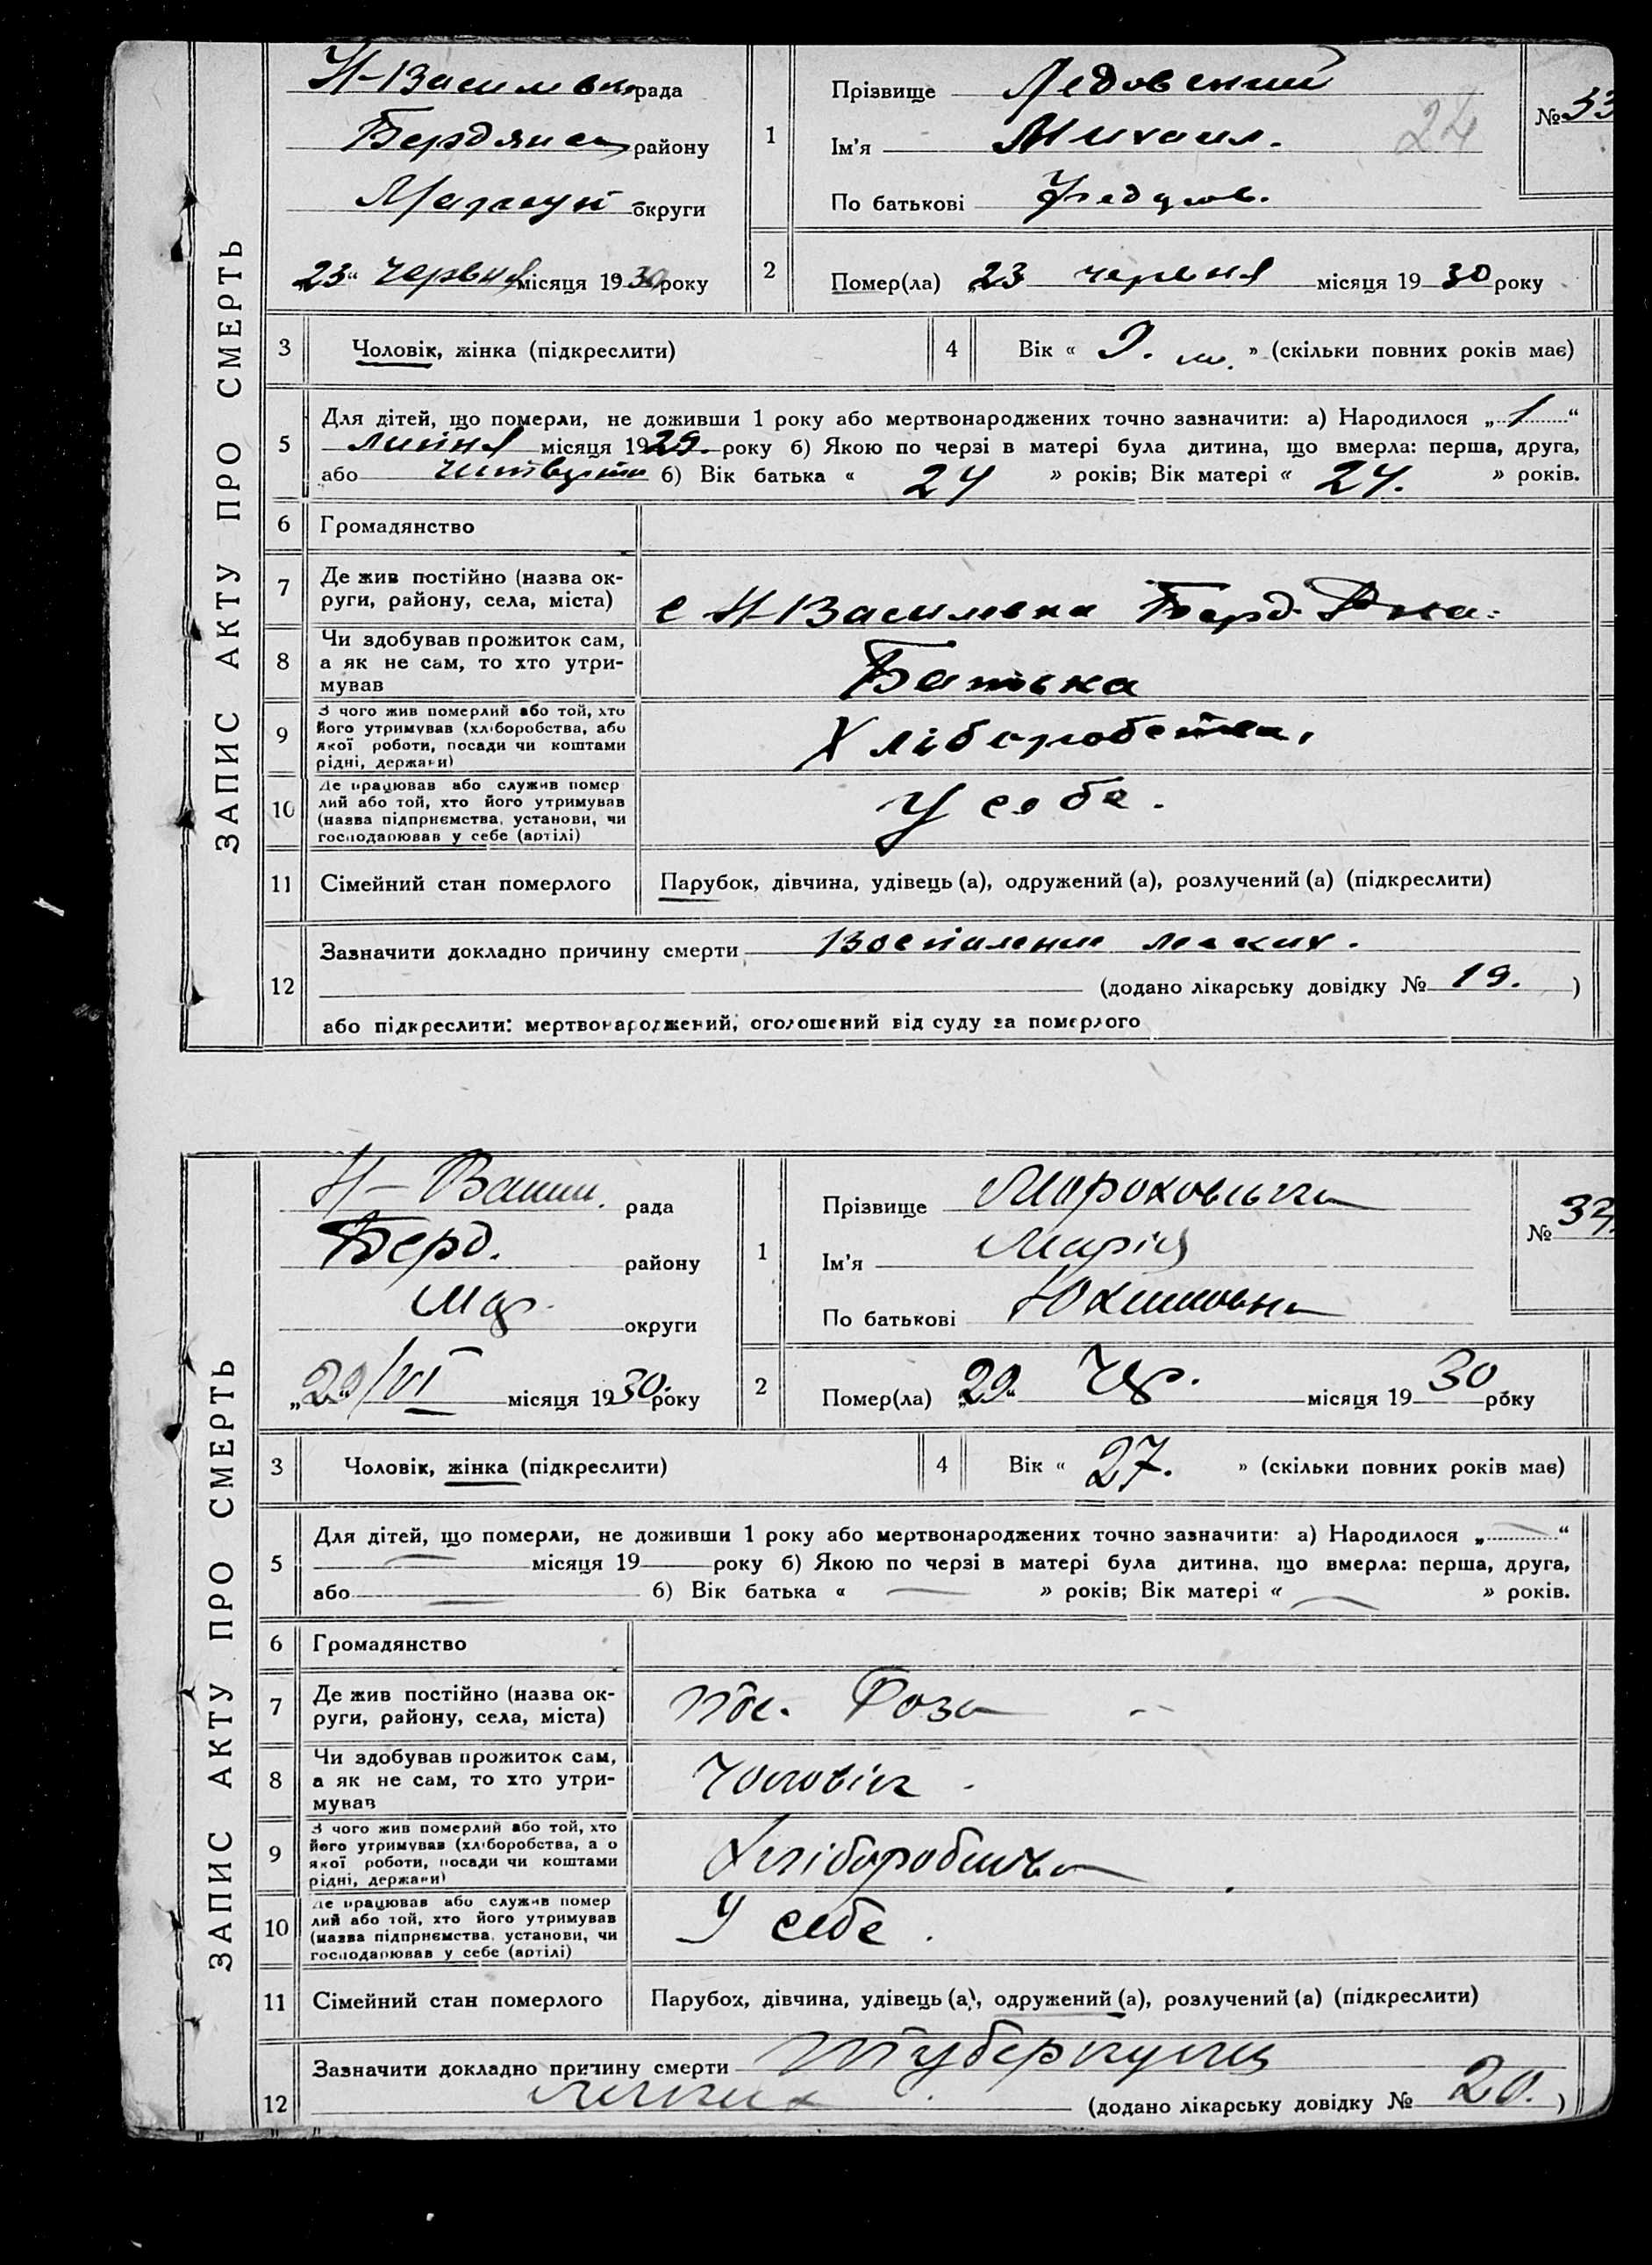 ЗАПИС АКТУ ПРО СМЕРТЬ
Н-Василівк рада
Бердянск району
Маріуп округи
„23“ червня місяця 1930 року
1
Прізвище Ледовский
Ім'я Михаил.
24
По батькові Федоров.
№ 33
2
Помер(ла) 23 червня місяця 19 30 року
3 Чоловік, жінка (підкреслити)
4 Вік « 9. м. » (скільки повних років має)
5 Для дітей, що померли, не доживши 1 року або мертвонароджених точно зазначити: а) Народилося „ 1 “
липня місяця 1929. року б) Якою по черзі в матері була дитина, що вмерла: перша, друга,
або 6) Вік батька « 24 » років; Вік матері « 24. » років.
6 Громадянство
7 Де жив постійно (назва ок-
руги, району, села, міста)
с Н-Василевка Берд. Р-на.
8 Чи здобував прожиток сам,
а як не сам, то хто утри-
мував
Батька
9 З чого жив померлий або той, хто
його утримував (хліборобства, або
якої роботи, посади чи коштами
рідні, держави)
Хліборобства,
10 Де працював або служив помер
лий або той, хто його утримував
(назва підприємства, установи, чи
господарював у себе (артілі)
У себе.
11 Сімейний стан померлого Парубок, дівчина, удівець (а), одружений (а), розлучений (а) (підкреслити)
12 Зазначити докладно причину смерти Воспиление легких.
(додано лікарську довідку № 19. )
або підкреслити: мертвонароджений, оголошений від суду за померлого
ЗАПИС АКТУ ПРО СМЕРТЬ
Н-Васил. рада
Берд. району
Мар. округи
„29“/VI місяця 1930 року
1
Прізвище
Ім'я Марія
По батькові Юхимовна
№ 34.
2
Помер(ла) „29“ Чер. місяця 19 30 року
3 Чоловік, жінка (підкреслити)
4 Вік « 27. » (скільки повних років має)
5 Для дітей, що померли, не доживши 1 року або мертвонароджених точно зазначити: а) Народилося „ — “
— місяця 19 року б) Якою по черзі в матері була дитина, що вмерла: перша, друга,
або — 6) Вік батька « — » років; Вік матері « — » років.
6 Громадянство
7 Де жив постійно (назва ок-
руги, району, села, міста)
пос. Роза —
8 Чи здобував прожиток сам,
а як не сам, то хто утри-
мував
Чоловік.
9 З чого жив померлий або той, хто
його утримував (хліборобства, а о
якої роботи, посади чи коштами
рідні, держави)
Хліборобства
10 Де працював або служив помер
лий або той, хто його утримував
(назва підприємства, установи, чи
господарював у себе (артілі)
У себе.
11 Сімейний стан померлого Парубок, дівчина, удівець (а), одружений (а), розлучений (а) (підкреслити)
12 Зазначити докладно причину смерти Туберкулез
легких (додано лікарську довідку № 20. )